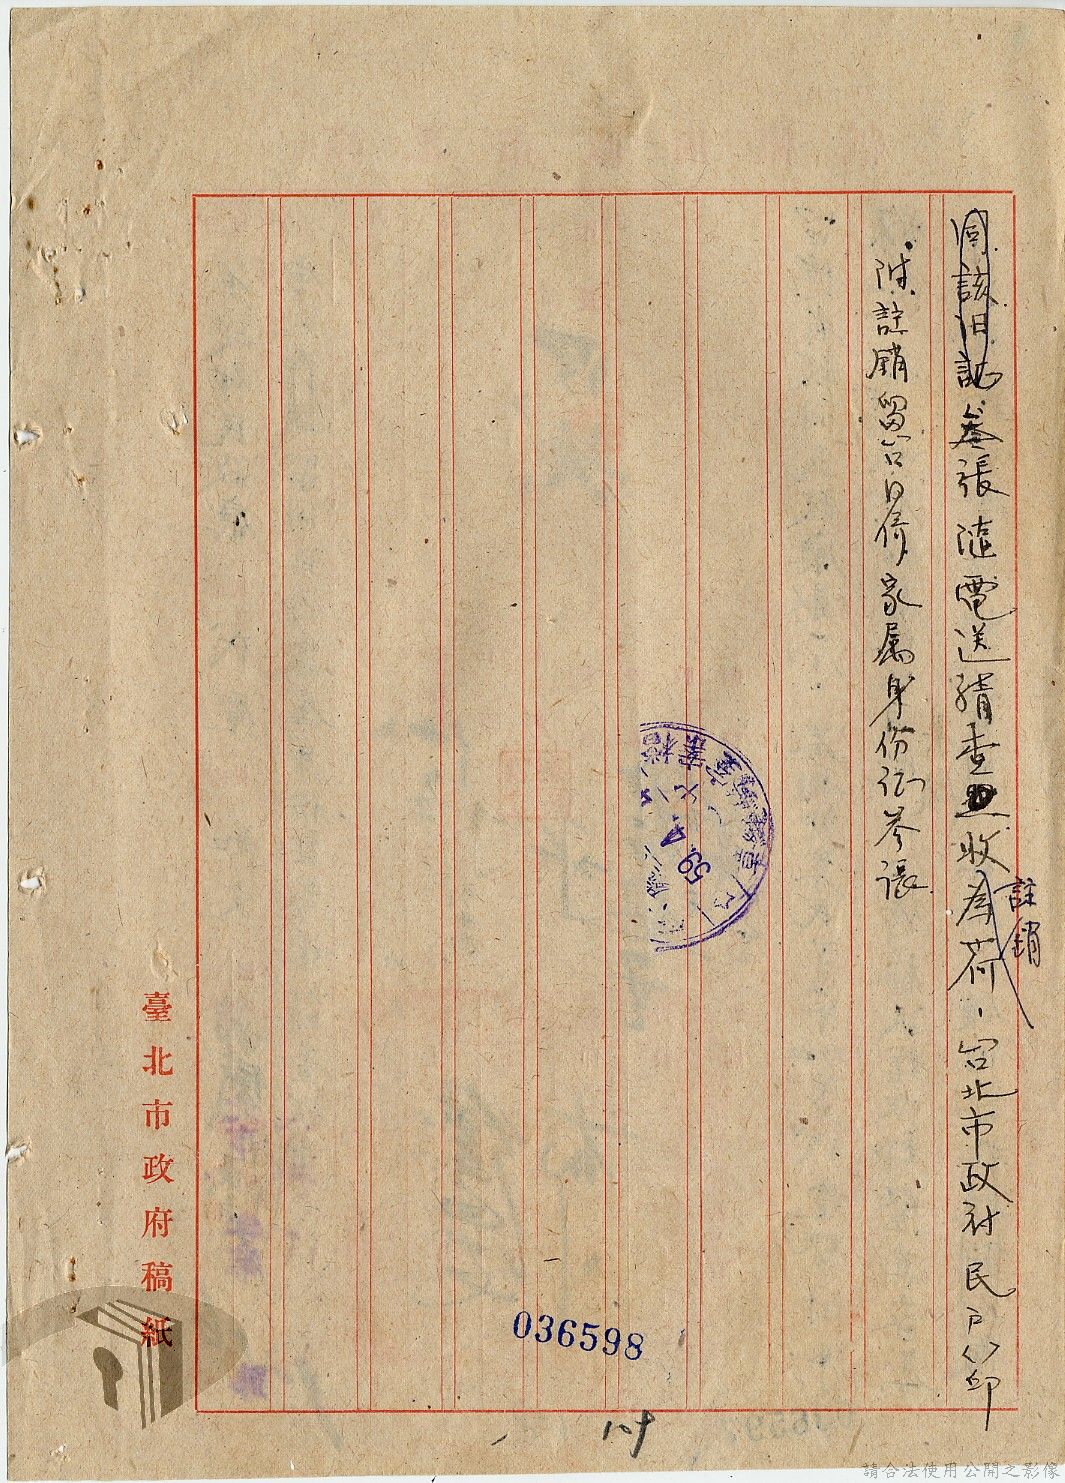 同該旧証叁張隨電送請查照收為荷、台北市政府民戶() 印
註銷
附註銷留台日僑家屬身份証叁張
臺北市政府稿紙
036598
請合法使用公開之影像